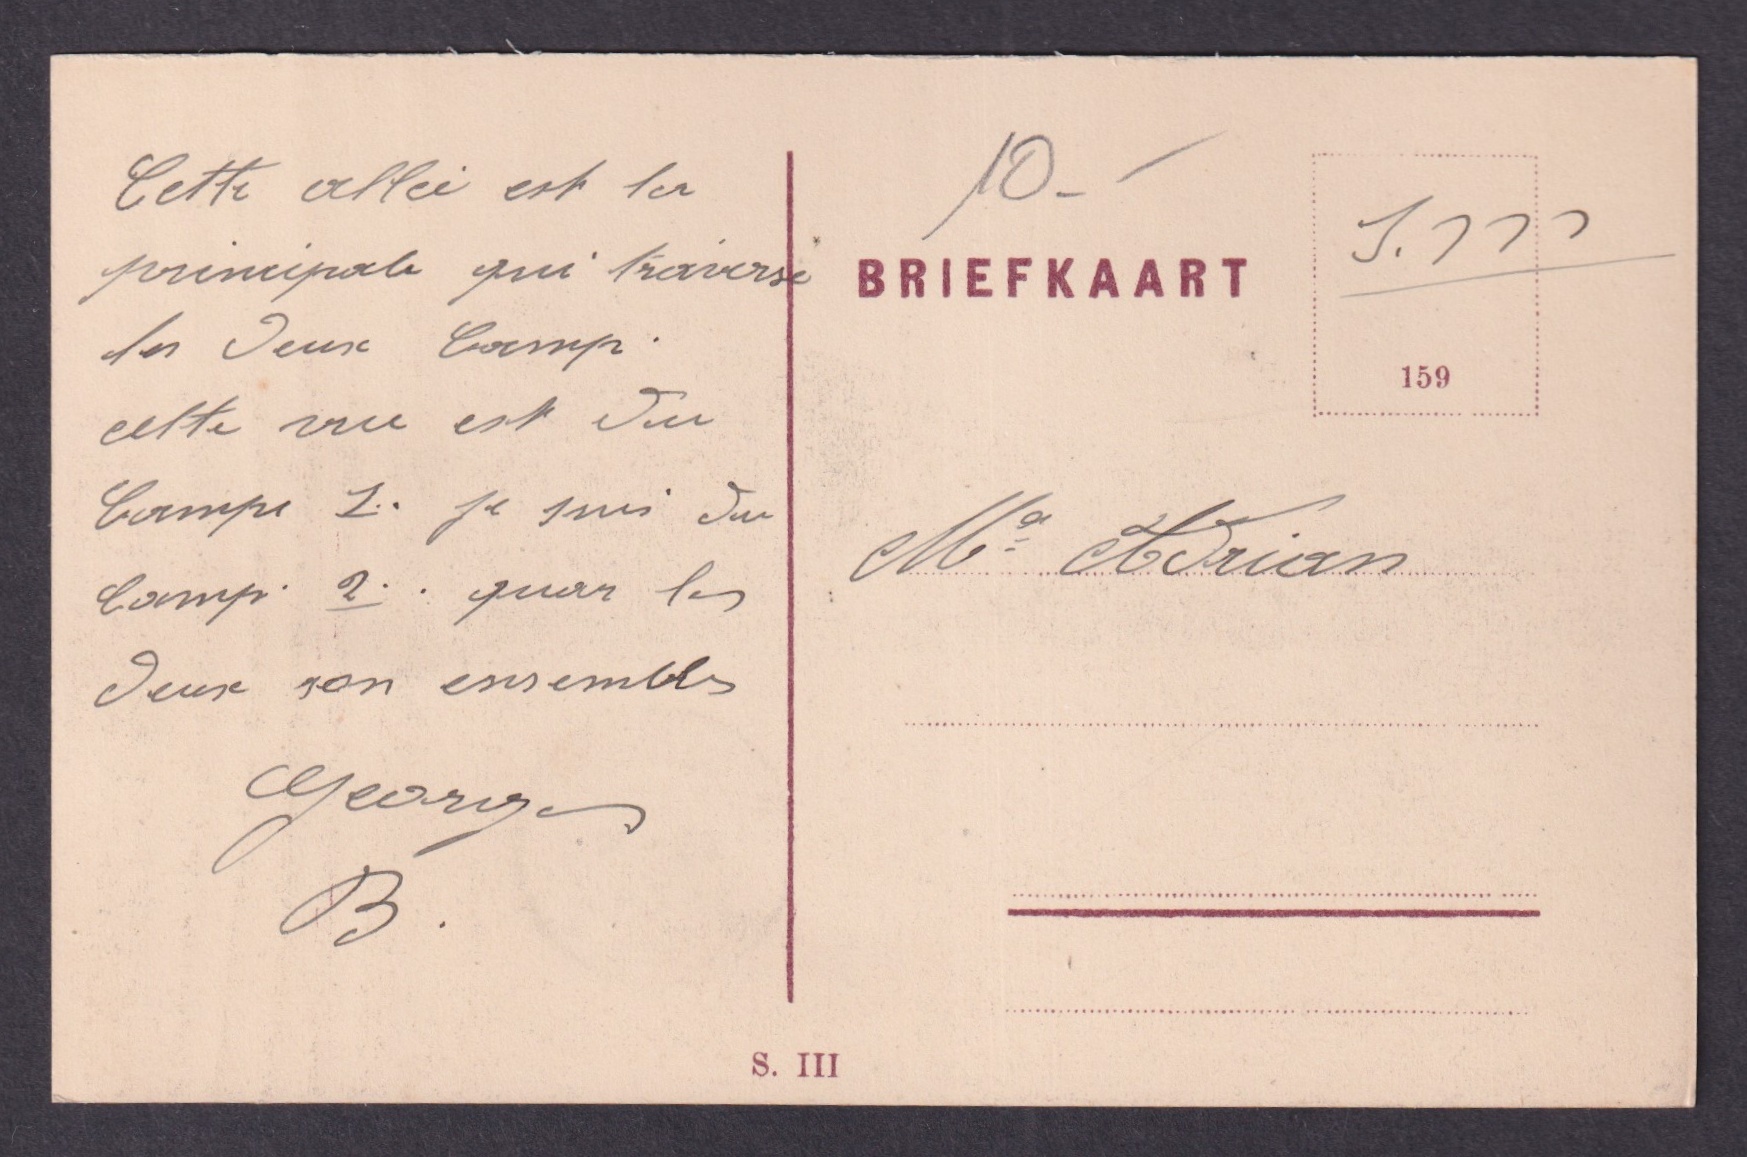 Cette allée est la
principale qui traverse
les deux Camp.
cette vue est du
Camps 1. je suis du
Camp. 2. quar les
deux son ensembles
Georges
B.
10.-
BRIEFKAART
159
Ma Adrian
S. III